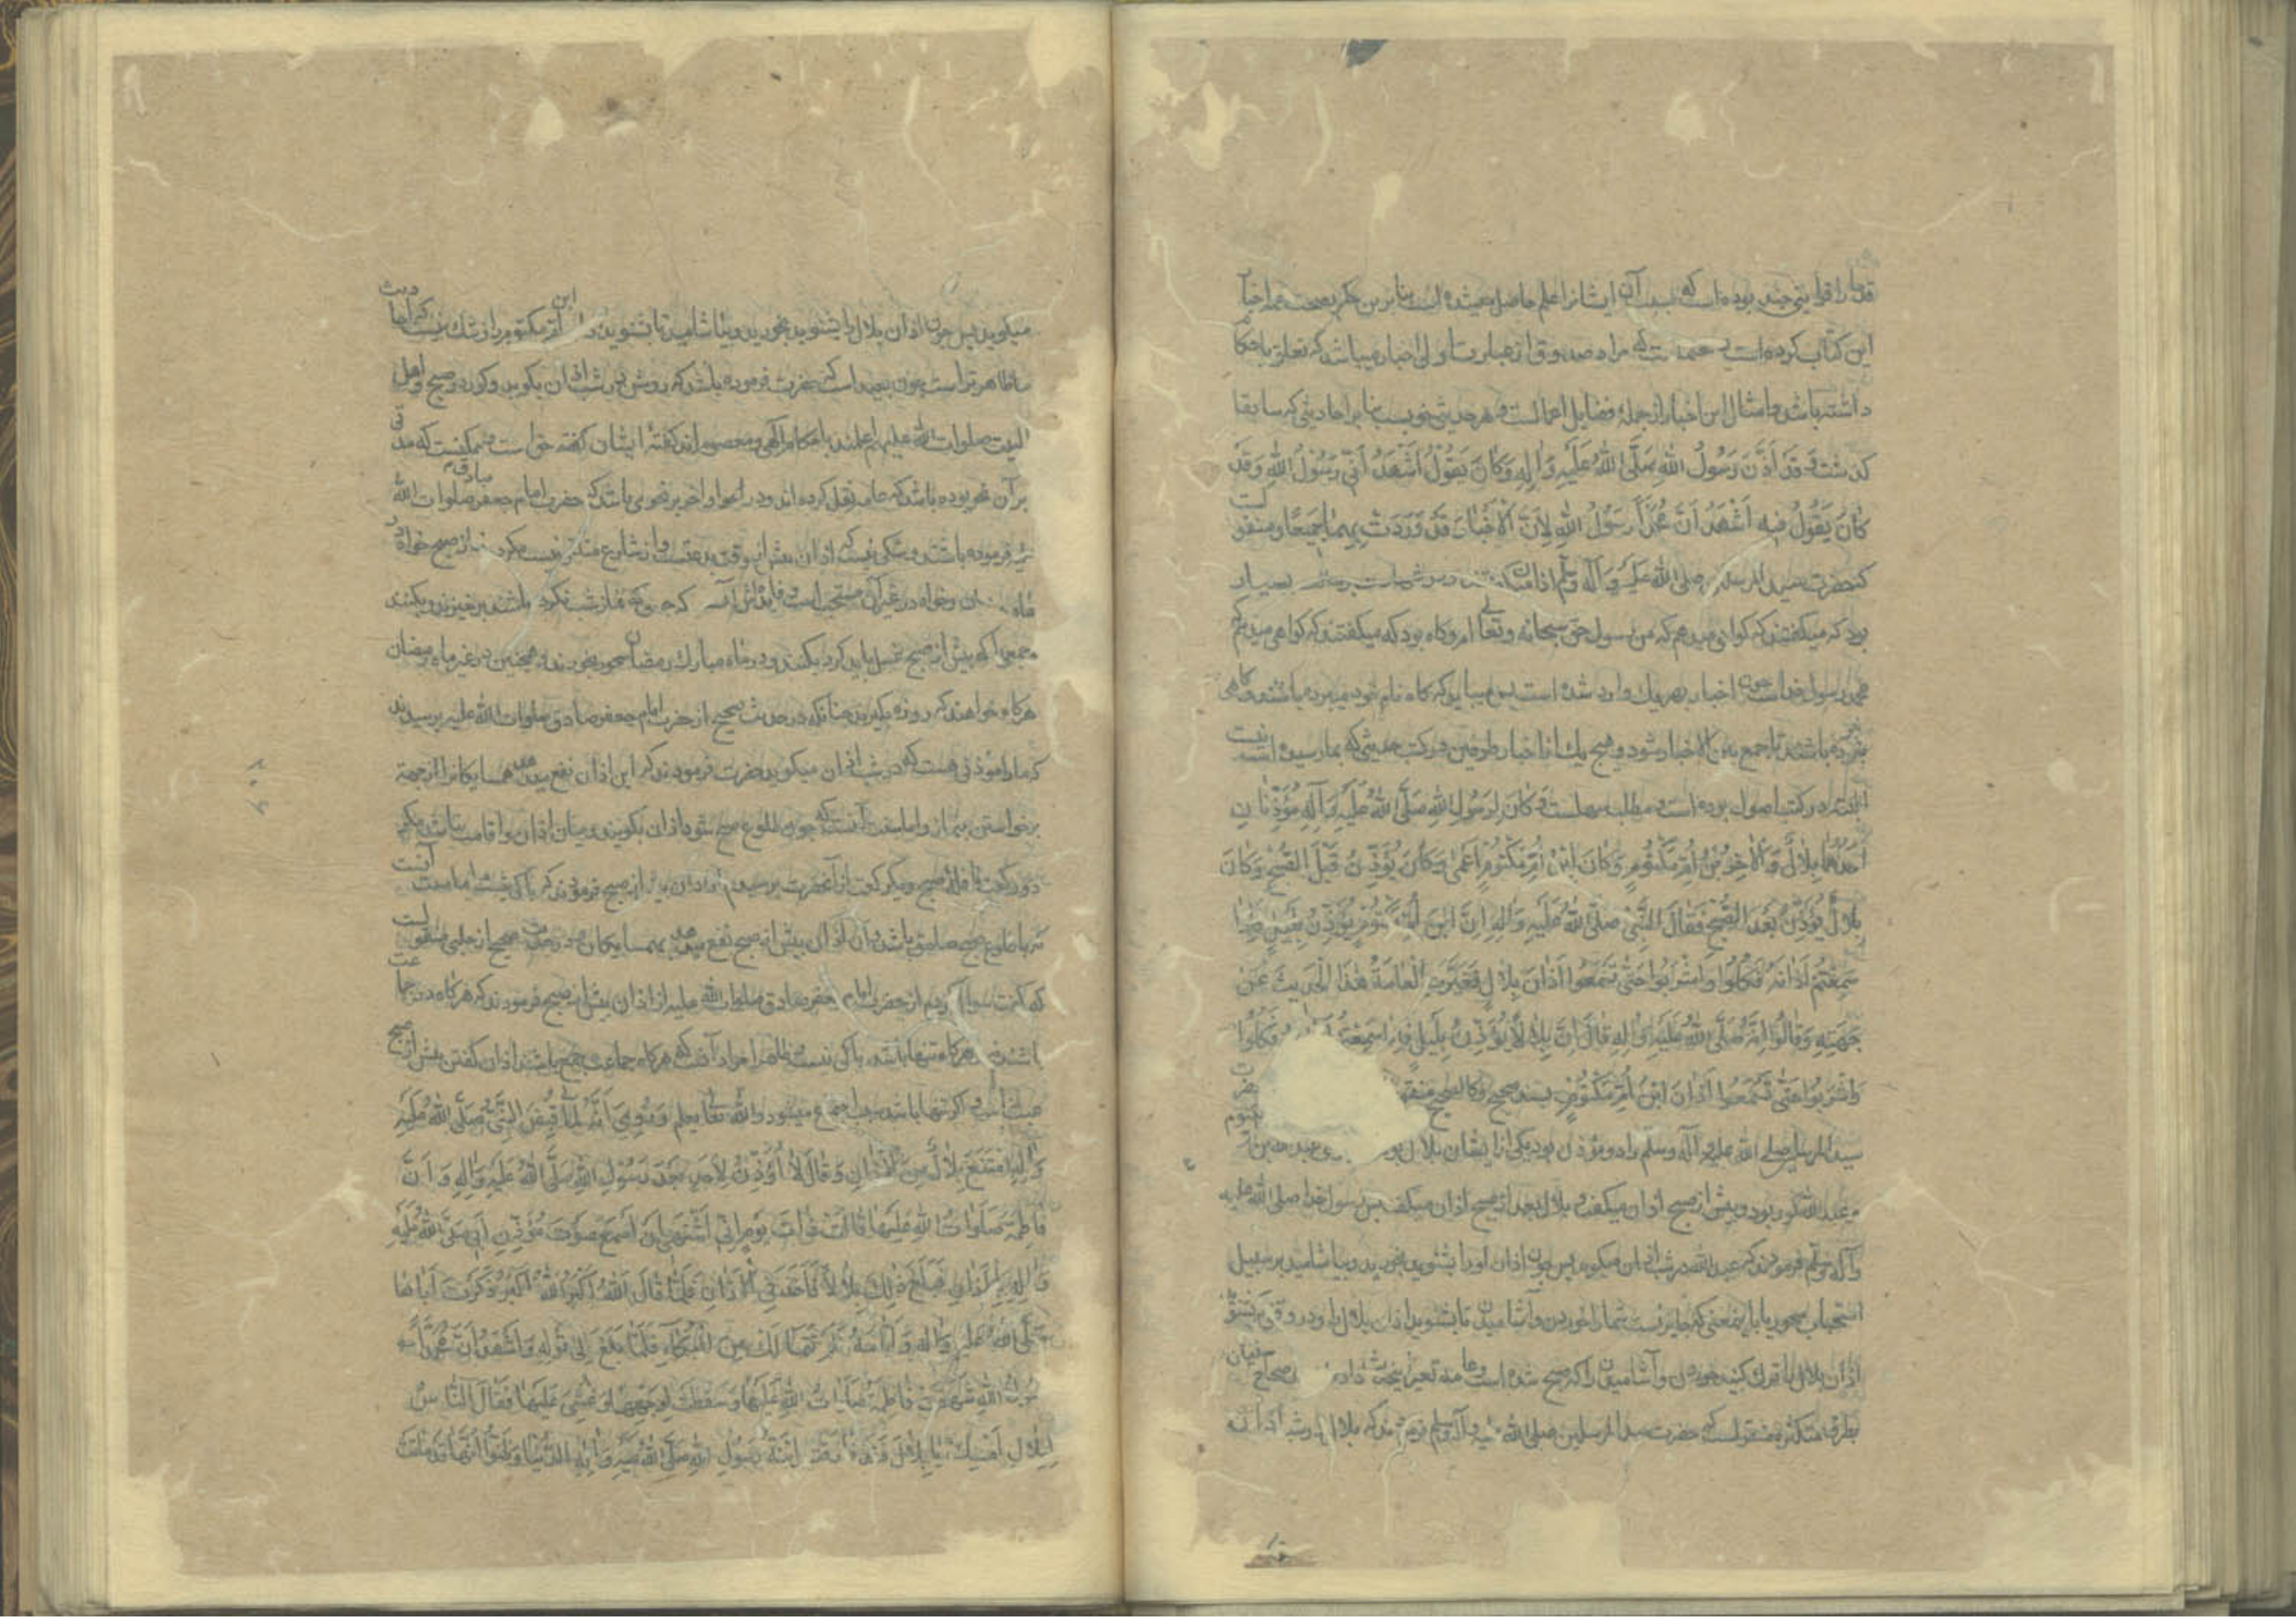 قدما را قراینی چند بوده است که بسبب آن ایشانرا علم حاصل میشده است بنا برین حکم بصحت همه اخبار
این کتاب کرده است مراد صدوق از عبارت اول اخبار میباشد که تعلق باحکام
داشته باشد و امثال این اخبار از جمله فضایل اعمالست و هر حدیثی خوبست بنا بر احادیثی که سابقا
کذشت وَ قَد اَذَّنَ رَسُولُ اللهِ صَلَّی اللهُ عَلَیهِ وَ اٰلِهِ وَکَانَ یَقُولُ اَشْهَدُ اَنّی رَسُولُ اللهِ وَ قَد
کانَ یَقُولُ فیهِ اَشْهَدُ اَنَّ مُحَمَّداً رَسُولُ اللهِ لِاَنَّ الْاَخْبَارَ قَد وَرَدَتْ بِهِمٰا جَمیعًا و منقولست
که حضرت سید المرسلین صلی الله علیه و آله وسلم اذان میکفتند و در شهادت برسالت
بود که میکفتند که کواهی میدهم که من رسول حق سبحانه و تعالی ام و کاه بود که میکفتند که کواهی میدهم که
محمد رسول خداست چون اخبار بهر یک وارد شده است میباید که کاه نام خود میبرده باشند و کاهی
نمیبرده باشند تا جمع بین الاخبار شود و هیچ یک از اخبار طرفین در کتب حدیثی که بما رسیده است نیست
البته در کتب اصول بوده است و مطلب سهلست وَ کانَ لِرَسُولِ اللهِ صَلَّی اللهُ عَلَیهِ وَ آلِهِ مُؤَذِّنَانِ
اَحَدُهُمٰا بِلالٌ وَ الْاٰخِرُ ابْنُ اُمِّ مَکْتُومٍ وَکَانَ ابْنُ اُمِّ مَکْتُومٍ اَعْمٰی وَکَانَ یُؤَذِّنُ قَبْلَ الصُّبْحِ وَ کَانَ
بِلالٌ یُؤَذِّنُ بَعْدَ الصُّبْحِ فَقَالَ النَّبِیُّ صَلَّی اللهُ عَلَیهِ وَ اٰلِهِ اِنَّ ابْنَ اُمِّ مَکْتُومٍ یُؤَذِّنُ بِلَیْلٍ فَاِذٰا
سَمِعْتُمْ اَذٰانَهُ فَکُلُوا وَ اشْرَبُوا حَتّٰی تَسْمَعُوا اَذٰانَ بِلالٍ فَغَیَّرَتِ الْعٰامَّةُ هٰذَا الْحَدیثَ عَنْ
جَهَتِهِ وَ قَالُوا اِنَّهُ صَلَّی اللهُ عَلَیهِ وَ اٰلِهِ قَالَ اِنَّ بِلالاً یُؤَذِّنُ بِلَیْلٍ فَاِذَا سَمِعْتُمْ فَکُلُوا
وَ اشْرَبُوا حَتّٰی تَسْمَعُوا اَذَانَ ابْنِ اُمِّ مَکْتُومٍ بسند صحیح و کالصحیح حضرت
سید المرسلین صلی الله علیه و آله وسلم را دو مؤذن بود یکی از ایشان بلال مکتوم
و عبد الله کور بود و پیش از صبح اذان میکفت و بلال بعد از صبح اذان میکفت پس رسول خدا صلی الله علیه
و آله وسلم فرمودند که عبد الله در شب اذان میکوید پس چون اذان او را بشنوید بخورید و بیاشامید بر سبیل
استحباب سحور یا باینمعنی که جایز است شما را خوردن و آشامیدن تا بشنوید اذان بلال را و در وقتی بشنوید
اذان بلال را ترک کنید خوردن و آشامیدن را که صبح شده است و عامه تغییر داده صحاح
بطرق متکثره منقولست که حضرت سید المرسلین صلی الله علیه و آله وسلم فرمودند که بلال در شب اذان
میکوید پس چون اذان بلال را بشنوید بخورید و بیاشامید تا بشنوید اذان ابن ام مکتوم را و شک نیست که احادیث
ما ظاهرتر است چون بعید است که حضرت فرموده باشد که روشن در شب اذان بکوید و کور در صبح و اهل
البیت صلوات الله علیهم اعلمند باحکام الهی و معصوم اند کفتهٔ ایشان کفته خداست و ممکنست که مدتی
بر آن نحو بوده باشد که عامه نقل کرده اند و در اواخر بر نحوی باشد که حضرت امام جعفر صادق صلوات الله
علیه فرموده باشند و شکی نیست که اذان پیش از وقت بدعتست و از شارع متلقی نیست مکر در نماز صبح خواه در
ماه رمضان و خواه در غیر آن مستحب است و فایدهاش آنست که جمعی که نماز شب نکرده باشند برخیزند و بکنند
و جمعی که پیش از صبح غسل باید کرد بکنند و در ماه مبارک رمضان سحور بخورند و همچنین در غیر ماه رمضان
هرکاه خواهند که روزه بکیرند چنانکه در حدیث صحیح از حضرت امام جعفر صادق صلوات الله علیه پرسیدند
که ما را مؤذنی هست که در شب اذان میکوید حضرت فرمودند که این اذان نفع میدهد همسایکانرا از جهة
برخواستن بنماز و اما سنت آنست که چون طلوع صبح شود اذان بکویند و میان اذان و اقامت نباشد مکر
دو رکعت نافلهٔ صبح و میکر کفت از آنحضرت پرسیدم از اذان پیش از صبح فرمودند که باکی نیست اما سنت آنست
که با طلوع صبح صادق باشد و آن اذان پیش از صبح نفع میدهد بهمسایکان و در حدیث صحیح از حلبی منقولست
که کفت سوال کردم از حضرت امام جعفر صادق صلوات الله علیه از اذان پیش از صبح فرمودند که هرکاه در جماعت
باشد نه و هرکاه تنها باشد باکی نیست و ظاهرا مراد آنست که هرکاه جماعت جمع باشند اذان کفتن پیش از صبح
عبث باشد و اکر تنها باشد سبب اجتماع میشود والله تعالی یعلم وَ رُوِیَ اَنَّهُ لَمّٰا قُبِضَ النَّبِیُّ صَلَّی اللهُ عَلَیهِ
وَ اٰلِهِ امْتَنَعَ بِلالٌ مِنَ الْاَذٰانِ وَ قَالَ لاٰ اُؤَذِّنُ لِاَحَدٍ بَعْدَ رَسُولِ اللهِ صَلَّی اللهُ عَلَیهِ وَ اٰلِهِ وَ اِنَّ
فَاطِمَةَ صَلَوَاتُ اللهِ عَلَیْهٰا قَالَتْ ذَاتَ یَوْمٍ اِنّی اَشْتَهی اَنْ اَسْمَعَ صَوْتَ مُؤَذِّنِ اَبی صَلَّی اللهُ عَلَیهِ
وَ اٰلِهِ بِالْاَذٰانِ فَبَلَغَ ذٰلِکَ بِلالاً فَاَخَذَ فِی الْاَذٰانِ فَلَمّٰا قَالَ اللهُ اَکْبَرُ اللهُ اَکْبَرُ ذَکَرَتْ اَبَاهَا
صَلَّی اللهُ عَلَیهِ وَ اٰلِهِ وَ اَیّٰامَهُ فَلَمْ تَتَمٰالَکْ مِنَ الْبُکَاءِ فَلَمّٰا بَلَغَ اِلٰی قَوْلِهِ وَ اَشْهَدُ اَنَّ مُحَمَّداً
رَسُولُ اللهِ شَهَقَتْ فَاطِمَةُ صَلَوَاتُ اللهِ عَلَیْهَا وَ سَقَطَتْ لِوَجْهِهَا وَ غُشِیَ عَلَیْهَا فَقَالَ النَّاسُ
لِبِلَالٍ اَمْسِکْ یَا بِلَالُ فَقَدْ اِبْنَةُ رَسُولِ اللهِ صَلَّی اللهُ عَلَیهِ وَ اٰلِهِ الدُّنْیَا وَ ظَنُّوا اَنَّهَا قَدْ مَاتَتْ
۲۰۶